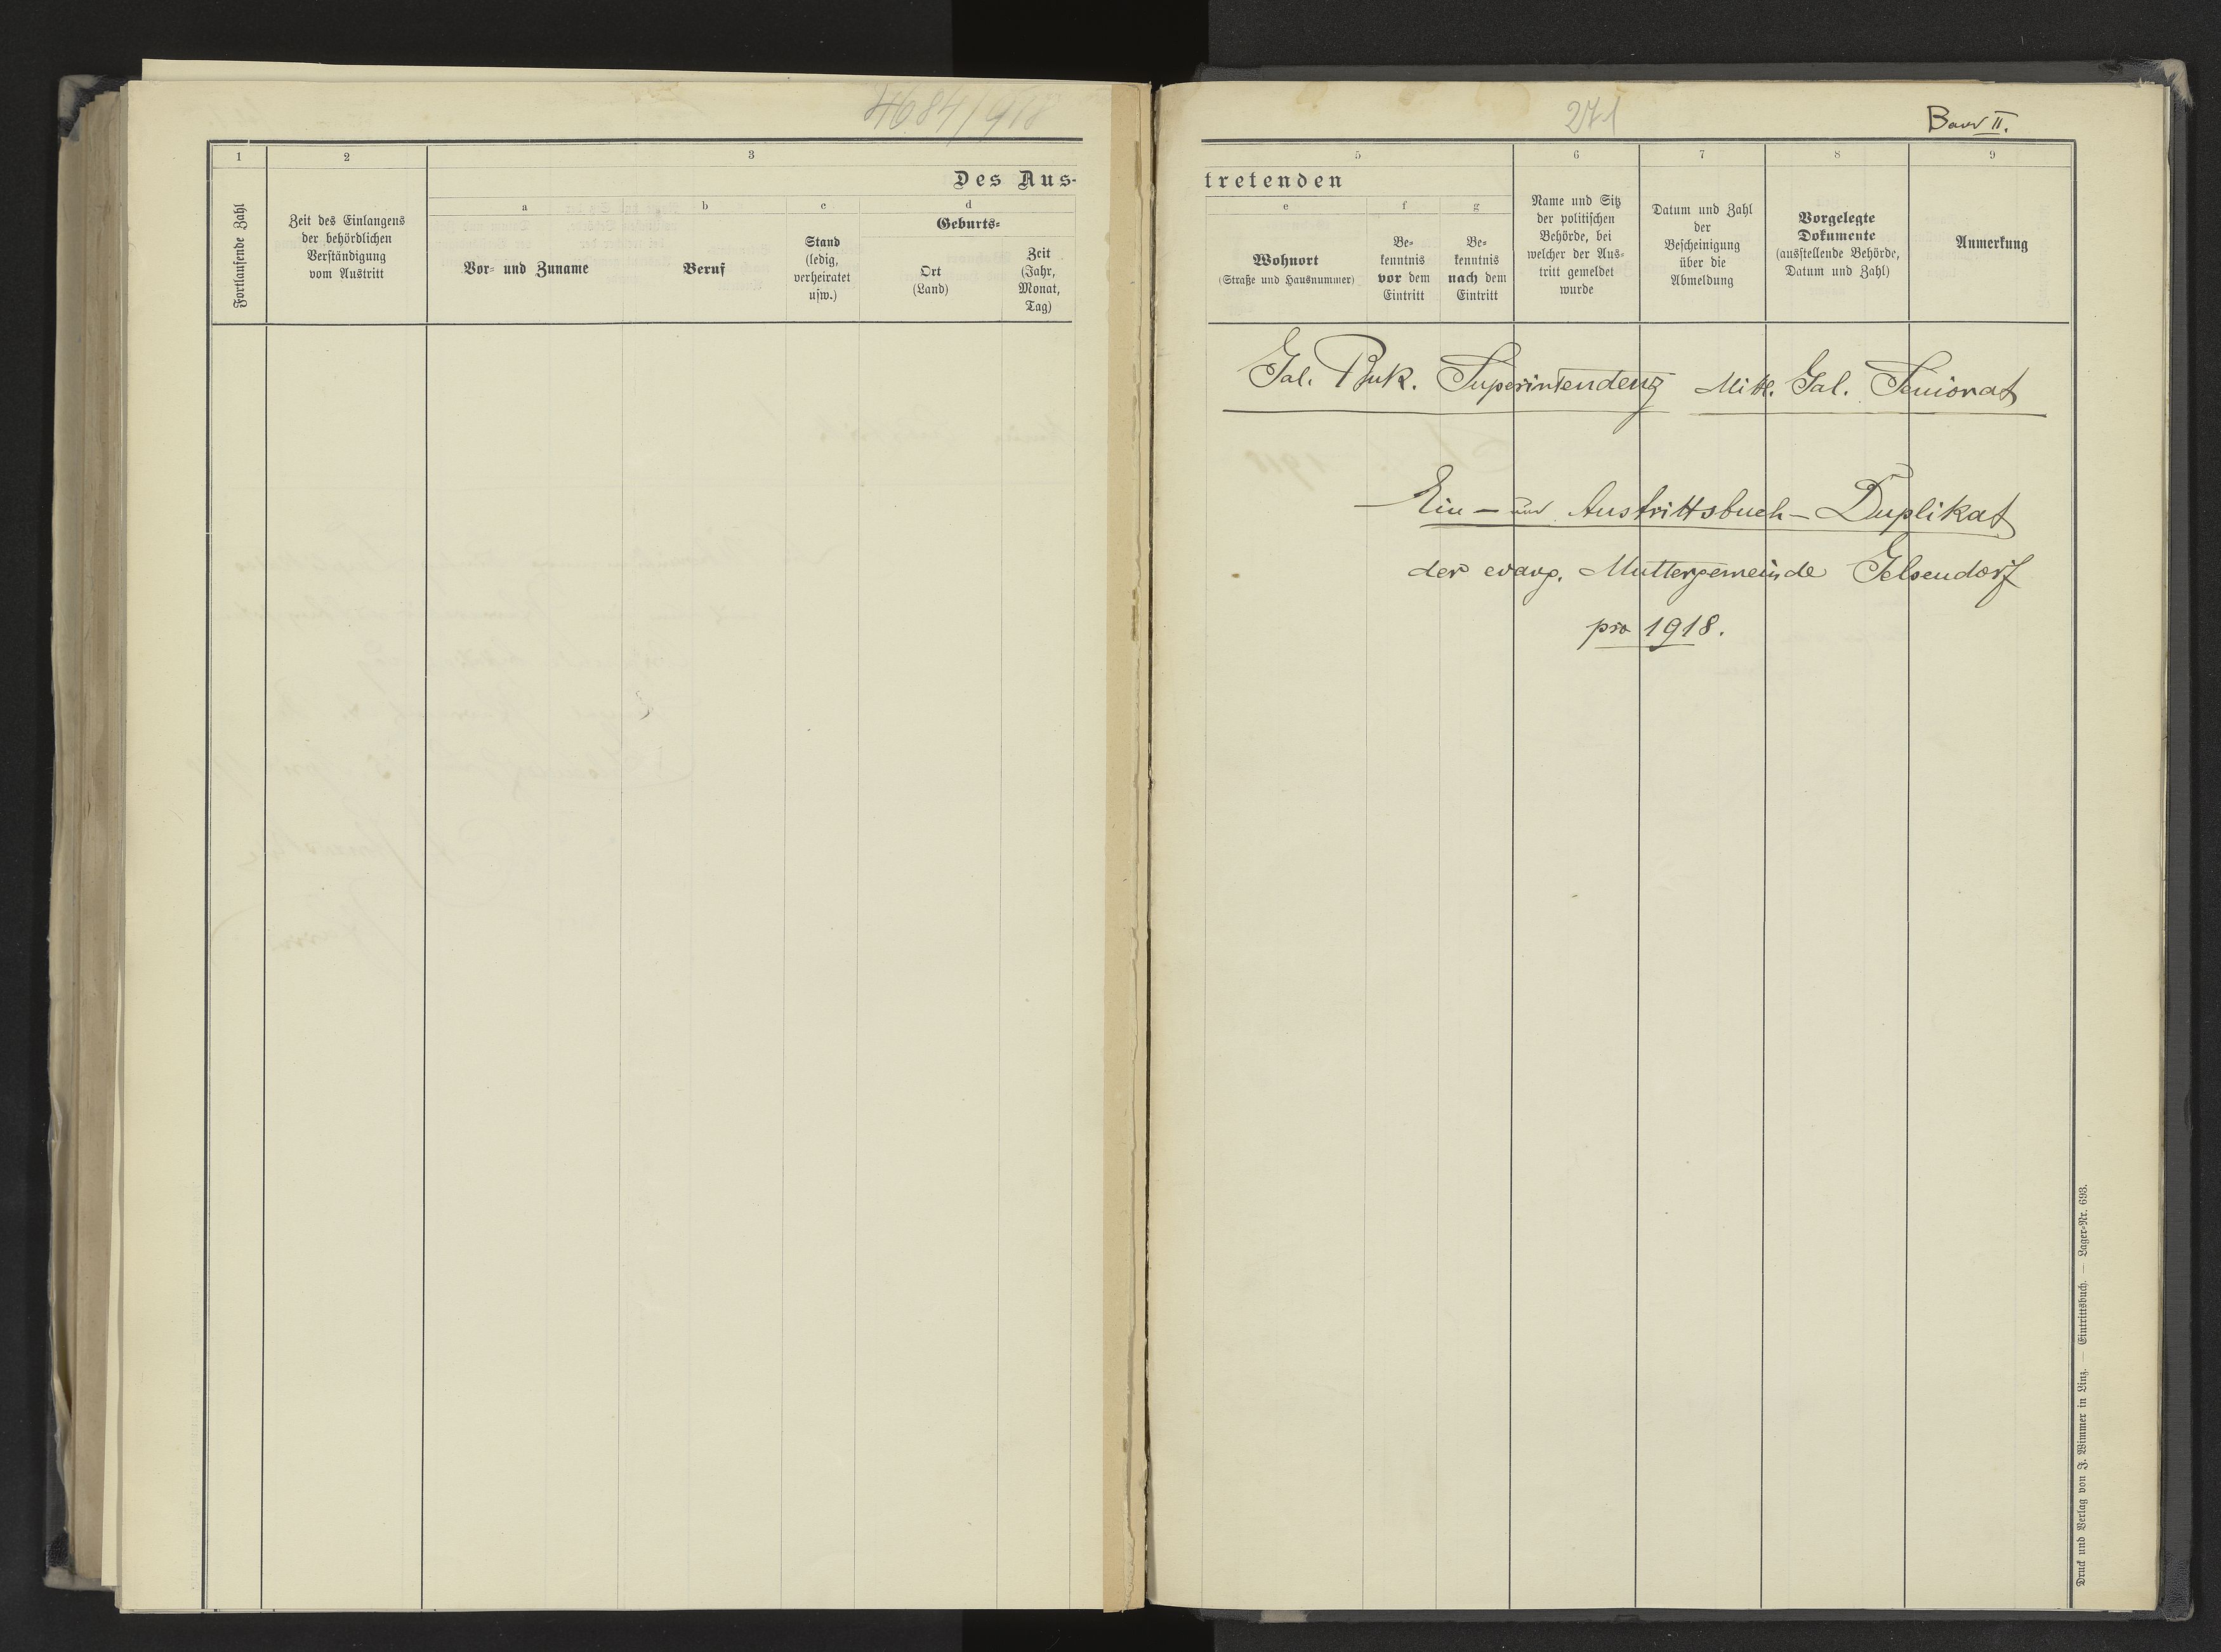 4684/918
1
2
3
Des Aus-
Fortlaufende Zahl
Zeit des Einlangens
der behördlichen
Verständigung
vom Austritt
a
b
c
d
Vor- und Zuname
Beruf
Stand
(ledig,
verheiratet
usw.)
Geburts-
Ort
(Land)
Zeit
(Jahr,
Monat,
Tag)
271
Band II.
5
6
7
8
9
tretenden
e
f
g
Wohnort
(Straße und Hausnummer)
Be-
kenntnis
vor dem
Eintritt
Be-
kenntnis
nach dem
Eintritt
Name und Sitz
der politischen
Behörde, bei
welcher der Aus-
tritt gemeldet
wurde
Datum und Zahl
der
Bescheinigung
über die
Abmeldung
Vorgelegte
Dokumente
(ausstellende Behörde,
Datum und Zahl)
Anmerkung
Gal. Buk. Superintendenz Mittl. Gal. Seniorat
Ein- und Austrittsbuch-Duplikat
der evang. Muttergemeinde Gelsendorf
pro 1918.
Druck und Verlag von F. Wimmer in Linz. — Eintrittsbuch. — Lager-Nr. 693.